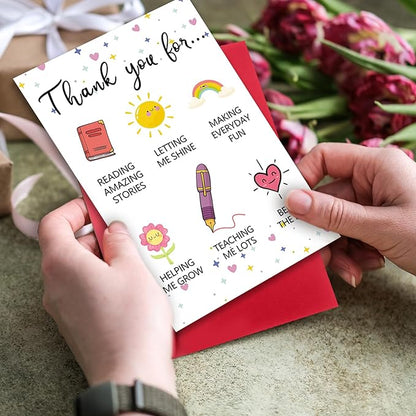 Thank you for...
READING
AMAZING
STORIES
LETTING
ME SHINE
MAKING
EVERYDAY
FUN
HELPING
ME GROW
TEACHING
ME LOTS
THE